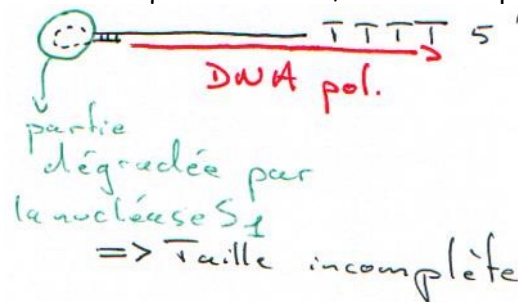 T T T T 5'
DNA pol.
partie
dégradée par
la nucléase S1
=> Taille incomplète